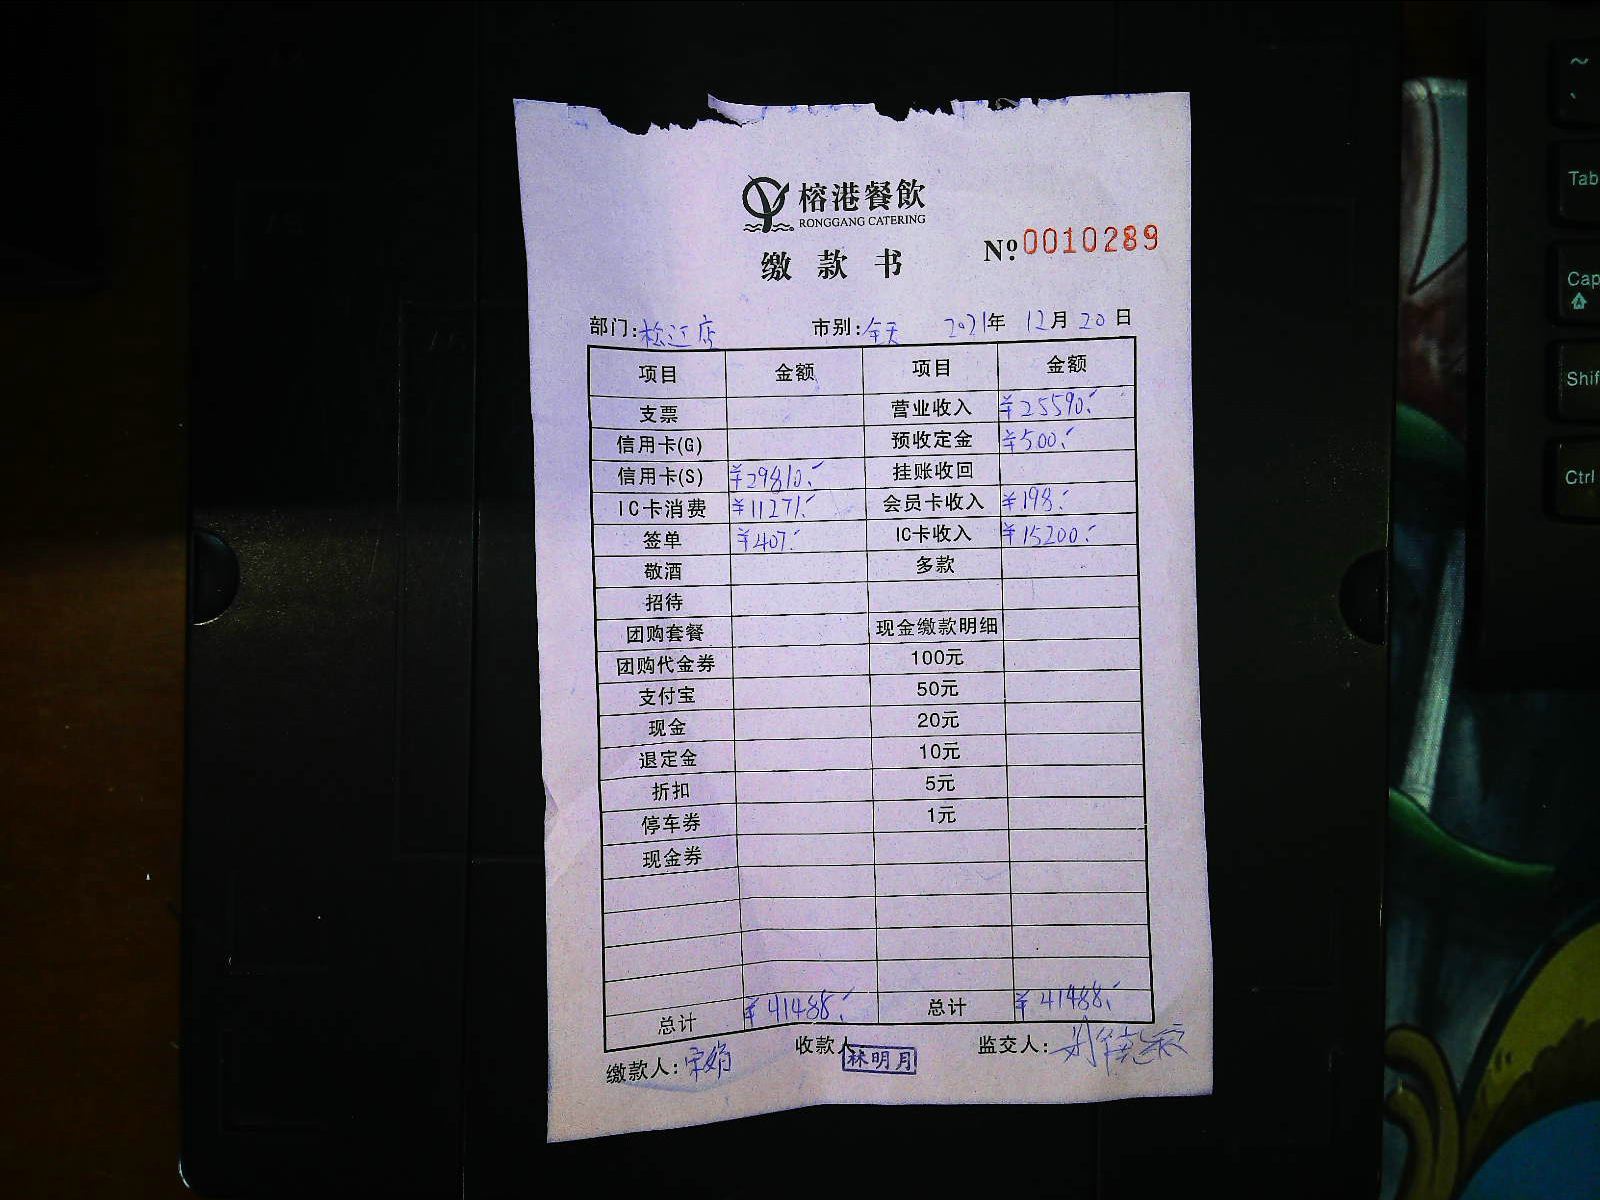 榕港餐飲
RONGGANG CATERING
缴款书
Nº 0010289
部门:松江店 市别:全天 2021年 12月 20日
项目 金额 项目 金额
支票 营业收入 ¥25590.-
信用卡(G) 预收定金 ¥500.-
信用卡(S) ¥29810.- 挂账收回
IC卡消费 ¥11271.- 会员卡收入 ¥198.-
签单 ¥407.- IC卡收入 ¥15200.-
敬酒 多款
招待
团购套餐 现金缴款明细
团购代金券 100元
支付宝 50元
现金 20元
退定金 10元
折扣 5元
停车券 1元
现金券
总计 ¥41488.- 总计 ¥41488.-
缴款人:宋娟 收款人 林明月 监交人:
~
Tab
Cap
Shif
Ctrl